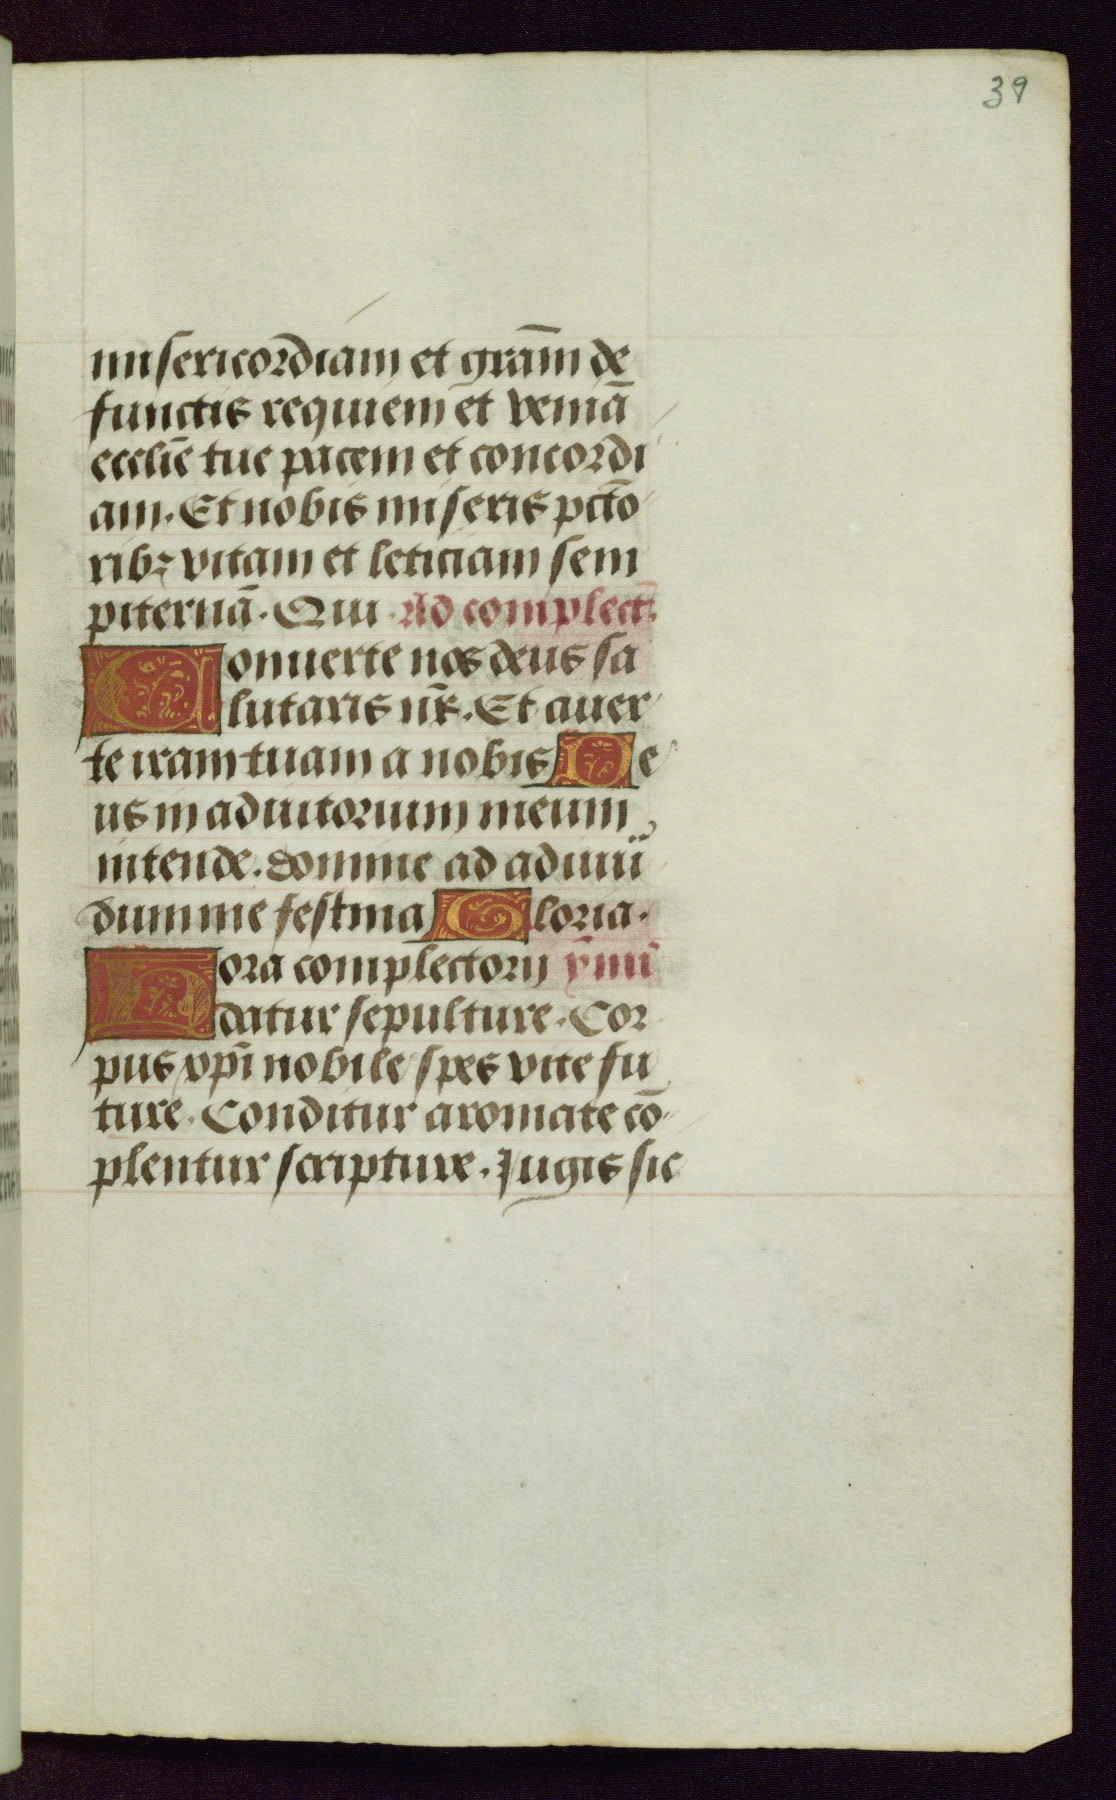 39
misericordiam et gram̄ de
functis requiem et veniā
eccliē tue pacem et concordi
am. Et nobis miseris pctō
ribꝫ vitam et leticiam sem
piternā. Qui. Ad complect.
Conuerte nos deus sa
lutaris nr̄. Et auer
te iram tuam a nobis De
us in adiutorium meum
intende. Domine ad adiuuā
dum me festina Gloria.
Hora complectorij ymn̄
datur sepulture. Cor
pus xpī nobile spes vite fu
ture. Conditur aromate cō
plentur scripture. Jugis sic